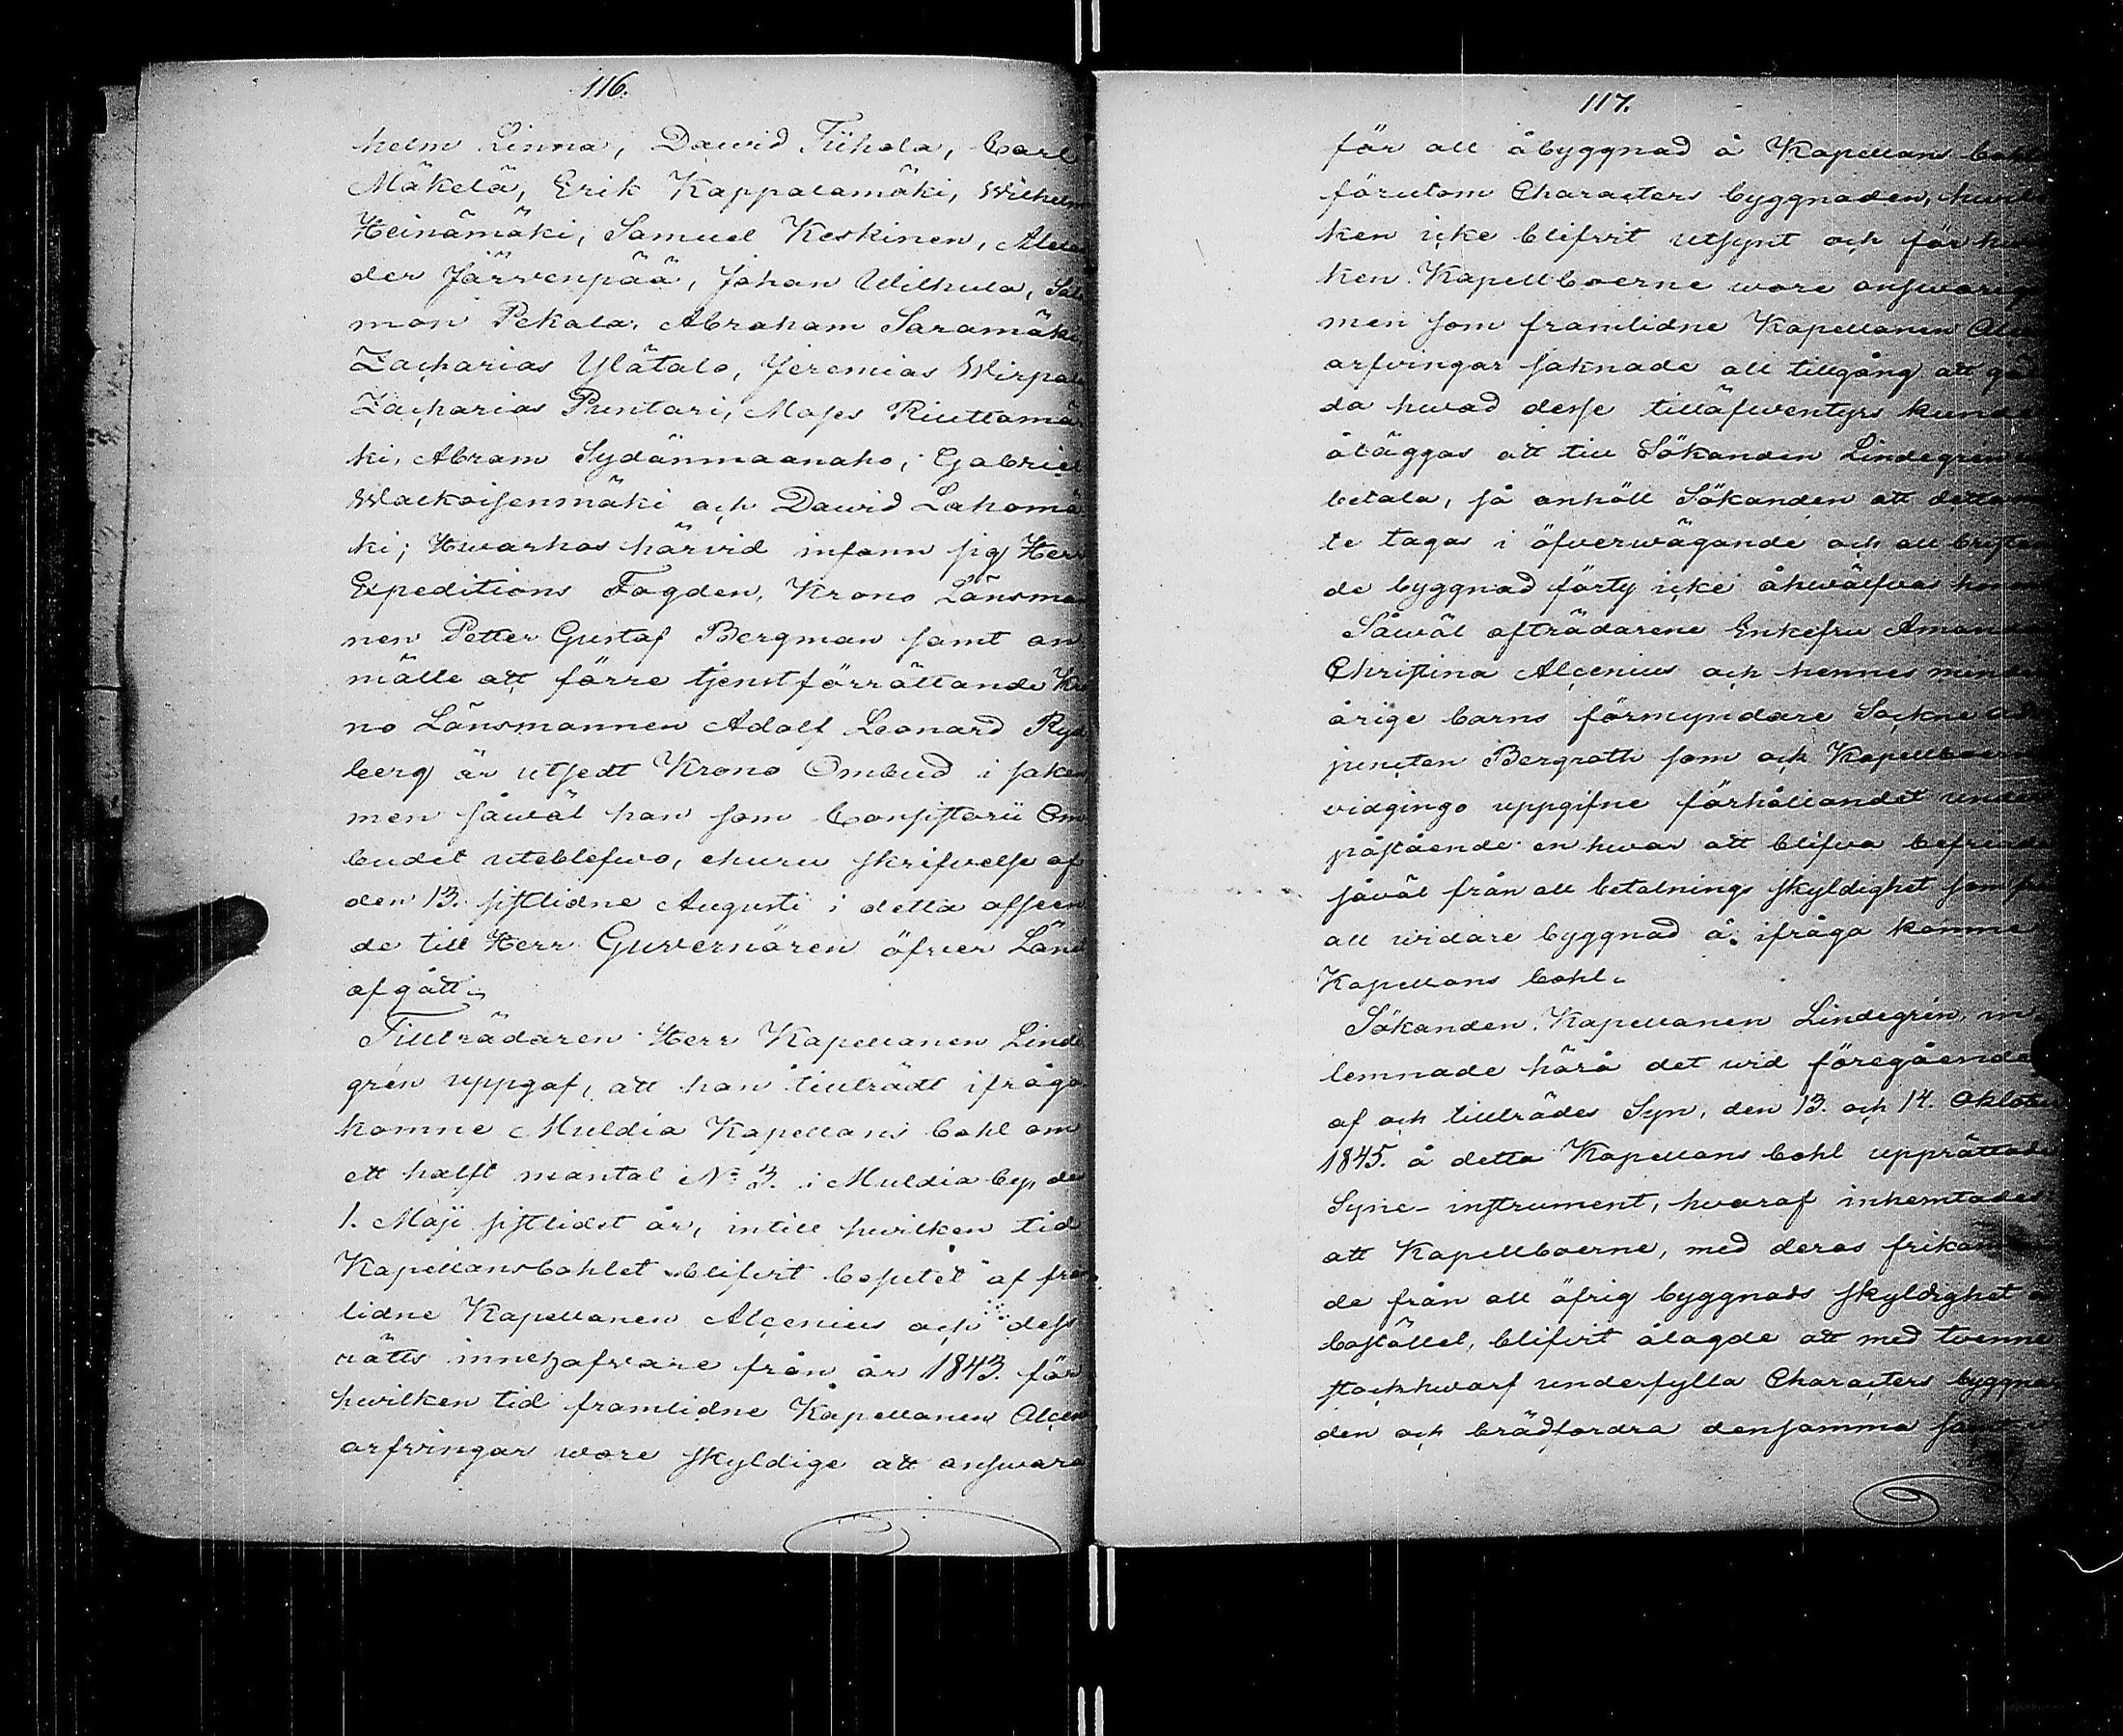 116.
helm Linna, Dawid Tiihola, Carl
Mäkelä, Erik Kappalamäki, Wilhelm
Heinämäki, Samuel Keskinen, Alexan
der Järvenpää, Johan Uilhula, Salo
mon Pekala, Abraham Saramäki
Zacharias Ylätalo, Jeremias Wirpala
Zacharias Puntari, Moses Riuttamä
ki, Abram Sydänmaanaho, Gabriel
Wackoisenmäki och Dawid Lahomä
ki; Hwarhos härvid infann sig Herr
Expeditions Fogden, Krono Länsman
nen Petter Gustaf Bergman samt an
mälte att förre tjenstförrättande Kro
no Länsmannen Adolf Leonard Ryd
berg är utsedt Krono Ombud i saken
men såwäl han som Consistorii Om
budet uteblefwo, ehuru skrifvelse af
den 13. sistlidne Augusti i detta afseen
de till Herr Guvernören öfver Länet
afgått.
Tillträdaren Herr Kapellanen Linde
grén uppgaf, att han tillträdt ifråga
komne Muldia Kapellans bohl om
ett halft mantal No 3. i Muldia by, den
1. Maji sistlidet år, intill hvilken tid
Kapellansbohlet blifvit besutet af fram
lidne Kapellanen Alcenius och dess
rätts innehafvare från år 1843. för
hvilken tid framlidne Kapellanen Alcenii
arfvingar wore skyldige att answara
117.
för all åbyggnad å Kapellans bohlet
förutom Characters byggnaden, hvil
ken icke blifvit utsynt och för hvil
ken Kapellboerne wore answarige
men som framlidne Kapellanen Alcenii
arfvingar saknade all tillgång att gäl
da hwad desse tilläfwentyrs kunde
åläggas att till Sökanden Lindegrén
betala, så anhöll Sökanden att detta
te tagas i öfverwägande och all bristan
de byggnad förty icke åhwälfvas honom
Såwäl afträdarene Enkefru Amanda
Christina Alcenius och hennes minder
årige barns förmyndare Sockne ad
juncten Bergroth som och Kapellboerne
vidgingo uppgifne förhållandet under
påstående en hwar att blifva befriade
såväl från all betalnings skyldighet som från
all widare byggnad å ifråga komne
Kapellans bohl.
Sökanden Kapellanen Lindegrén, in
lemnade härå det wid föregående
af och tillträdes Syn, den 13. och 14. Oktober
1845. å detta Kapellans bohl upprättade
Syne-instrument, hvaraf inhemtades
att Kapellboerne, med deras frikännan
de från all öfrig byggnads skyldighet å
bostället, blifvit ålagde att med tvenne
stockhwarf underfylla Characters byggna
den och brädfordra densamma samt